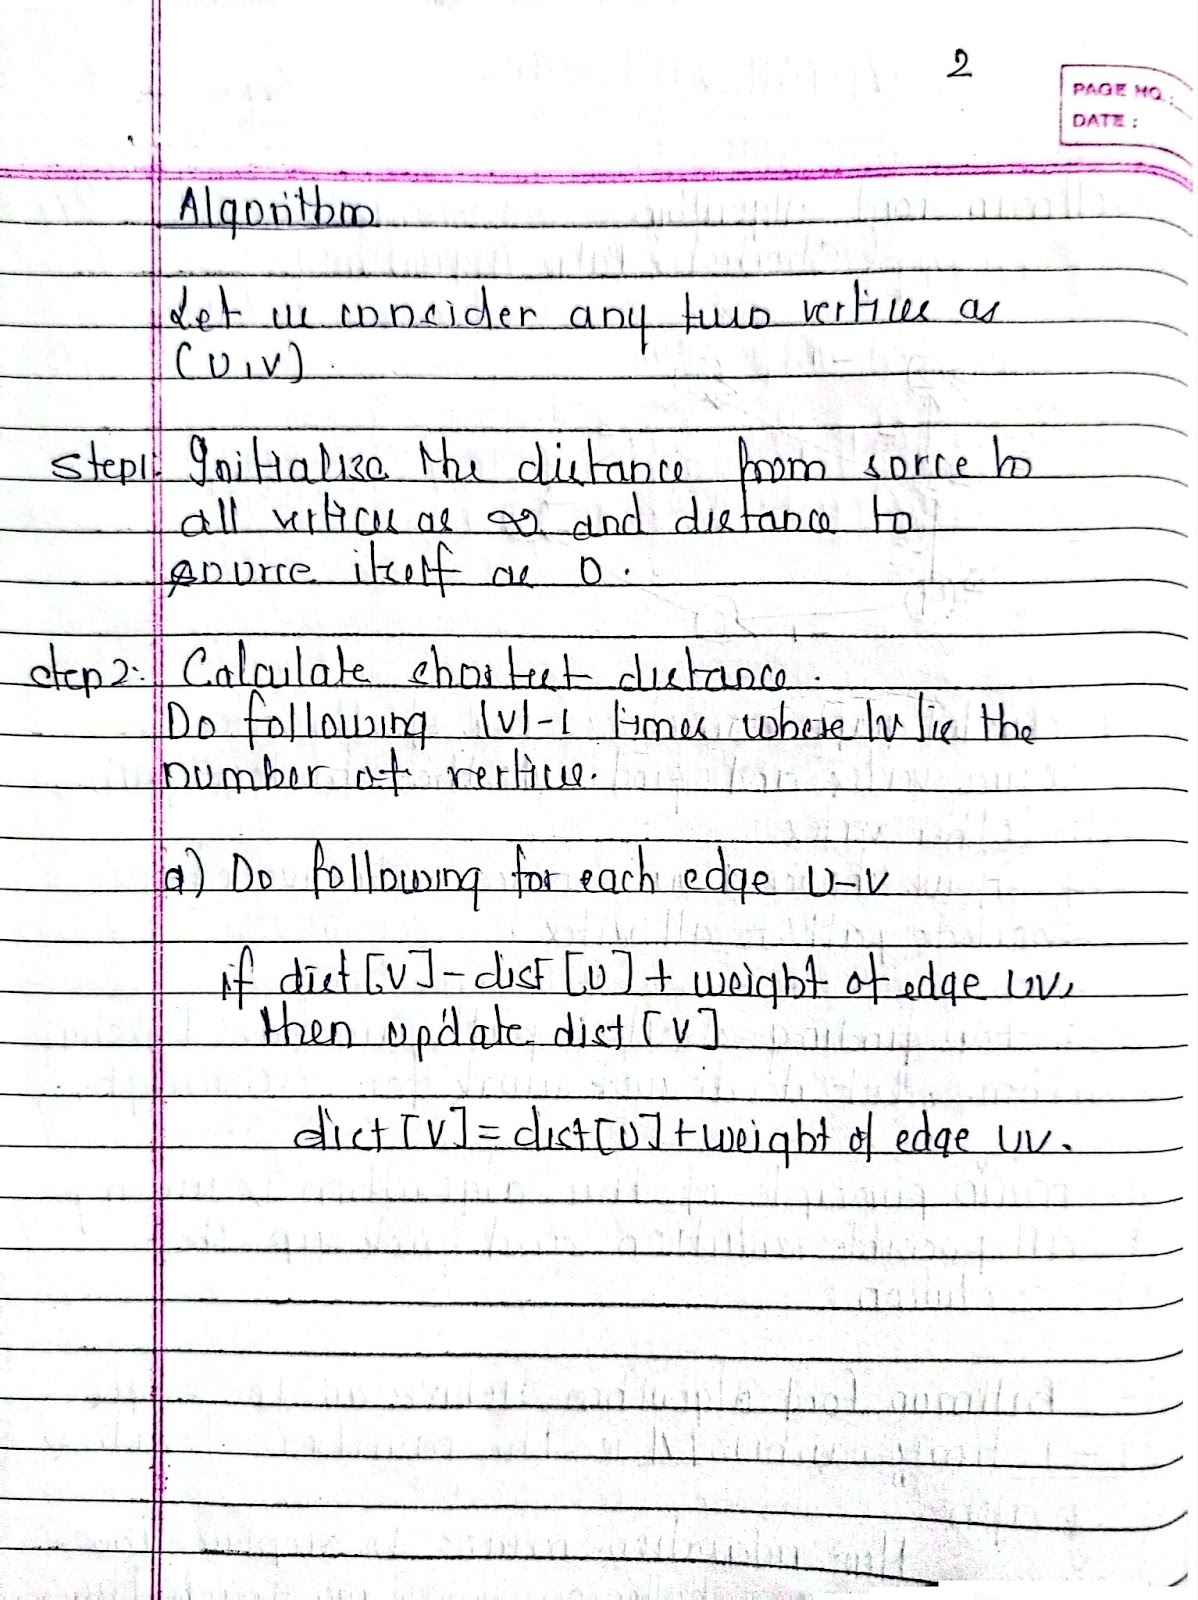 2
PAGE NO.:
DATE:
Algorithm
Let us consider any two vertices as
(U,V).
Step1: Initialise the distance from sorce to
all vertices as ∞ and distance to
source itself as 0.
step2: Calculate shortest distance.
Do following |V|-1 times where |V| is the
number of vertices.
a) Do following for each edge U-V
if dist[V]-dist[U]+weight of edge UV,
then update dist[V]
dist[V]=dist[U]+weight of edge UV.